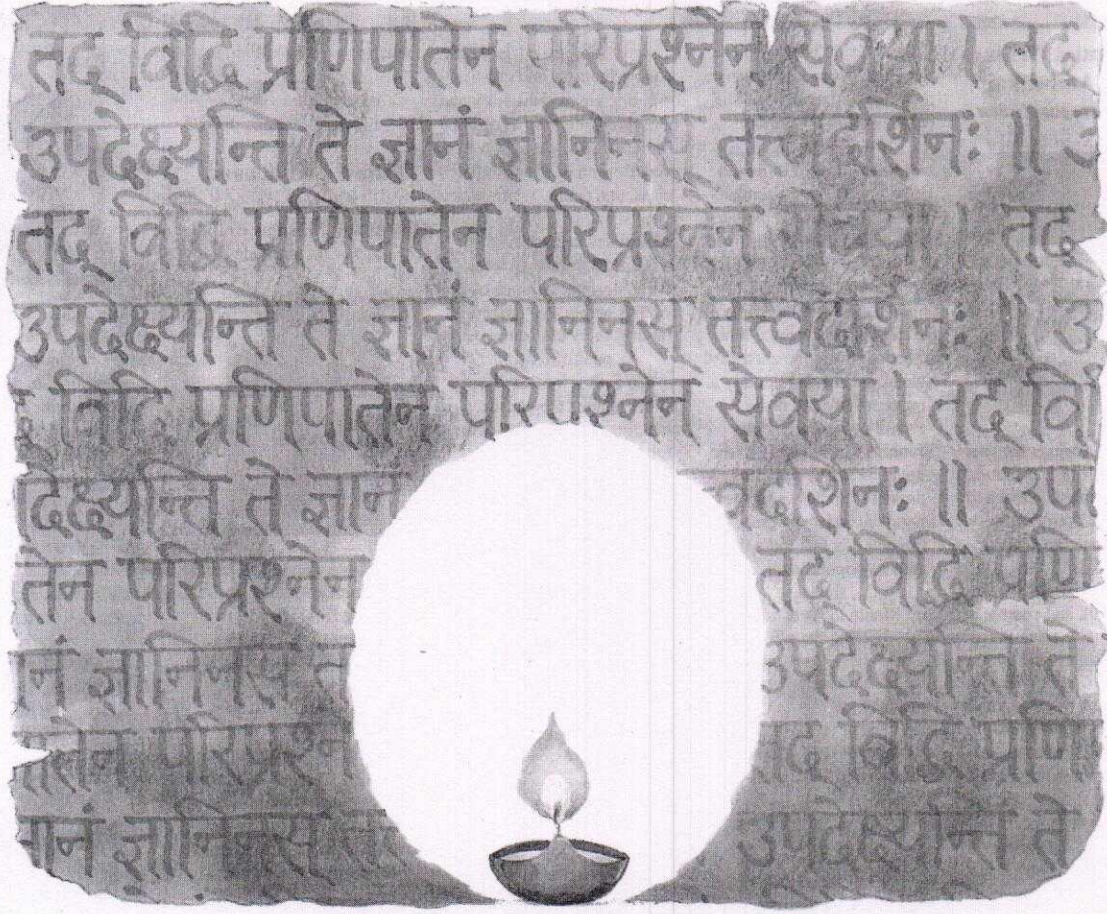 तद् विद्धि प्रणिपातेन परिप्रश्नेन सेवया । तद्
उपदेक्ष्यन्ति ते ज्ञानं ज्ञानिनस् तत्त्वदर्शिनः ॥ उ
तद् विद्धि प्रणिपातेन परिप्रश्नेन सेवया । तद्
उपदेक्ष्यन्ति ते ज्ञानं ज्ञानिनस् तत्त्वदर्शिनः ॥ उ
विद्धि प्रणिपातेन परिप्रश्नेन सेवया । तद् वि
देक्ष्यन्ति ते ज्ञान वदर्शिनः ॥ उप
तेन परिप्रश्नेन तद् विद्धि प्रणि
नं ज्ञानिनस् त उपदेक्ष्यन्ति ते
तेन परिप्रश्ने तद् विद्धि प्रणि
नं ज्ञानिनस् उपदेक्ष्यन्ति ते